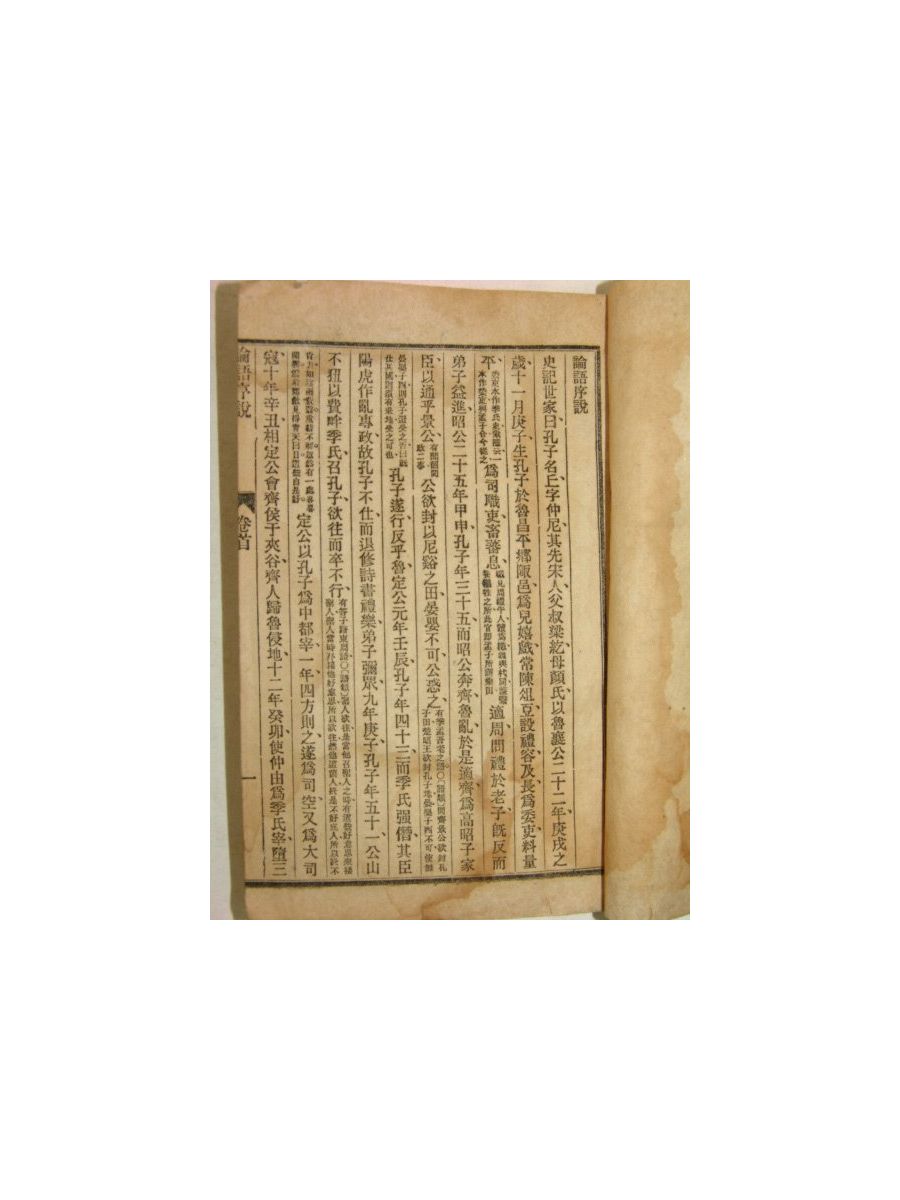 論語序說
史記世家曰孔子名丘字仲尼其先宋人父叔梁紇母顏氏以魯襄公二十二年庚戌之
歲十一月庚子生孔子於魯昌平鄉陬邑爲兒嬉戲常陳俎豆設禮容及長爲委吏料量
平委吏本作季氏史索隱云一本作委吏與孟子合今從之爲司職吏畜蕃息適周問禮於老子旣反而
弟子益進昭公二十五年甲申孔子年三十五而昭公奔齊魯亂於是適齊爲高昭子家
臣以通乎景公有聞韶問政二事公欲封以尼谿之田晏嬰不可公惑之有季孟吾老之語
孔子遂行反乎魯定公元年壬辰孔子年四十三而季氏强僭其臣
陽虎作亂專政故孔子不仕而退修詩書禮樂弟子彌眾九年庚子孔子年五十一公山
不狃以費畔季氏召孔子欲往而卒不行有答子路東周語
定公以孔子爲中都宰一年四方則之遂爲司空又爲大司
寇十年辛丑相定公會齊侯于夾谷齊人歸魯侵地十二年癸卯使仲由爲季氏宰墮三
論語序說 卷首 一